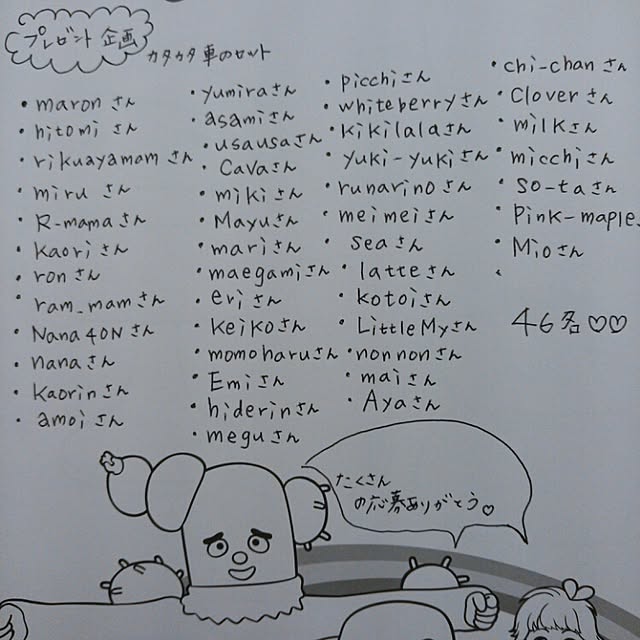 プレゼント企画
カタカタ車のセット
・maronさん
・hitomiさん
・rikuayamamさん
・miruさん
・R-mamaさん
・Kaoriさん
・ronさん
・ram_mamさん
・Nana40Nさん
・nanaさん
・Kaorinさん
・amoiさん
・yumiraさん
・asamiさん
・usausaさん
・Cavaさん
・mikiさん
・Mayuさん
・mariさん
・maegamiさん
・eriさん
・Keikoさん
・momoharuさん
・Emiさん
・hiderinさん
・meguさん
・picchiさん
・whiteberryさん
・kikilalaさん
・yuki-yukiさん
・runarinoさん
・meimeiさん
・seaさん
・latteさん
・kotoiさん
・LittleMyさん
・nonnonさん
・maiさん
・Ayaさん
・chi-chanさん
・Cloverさん
・milkさん
・micchiさん
・so-taさん
・Pink-maple
・Mioさん
46名♡♡
たくさん
の応募ありがとう♡